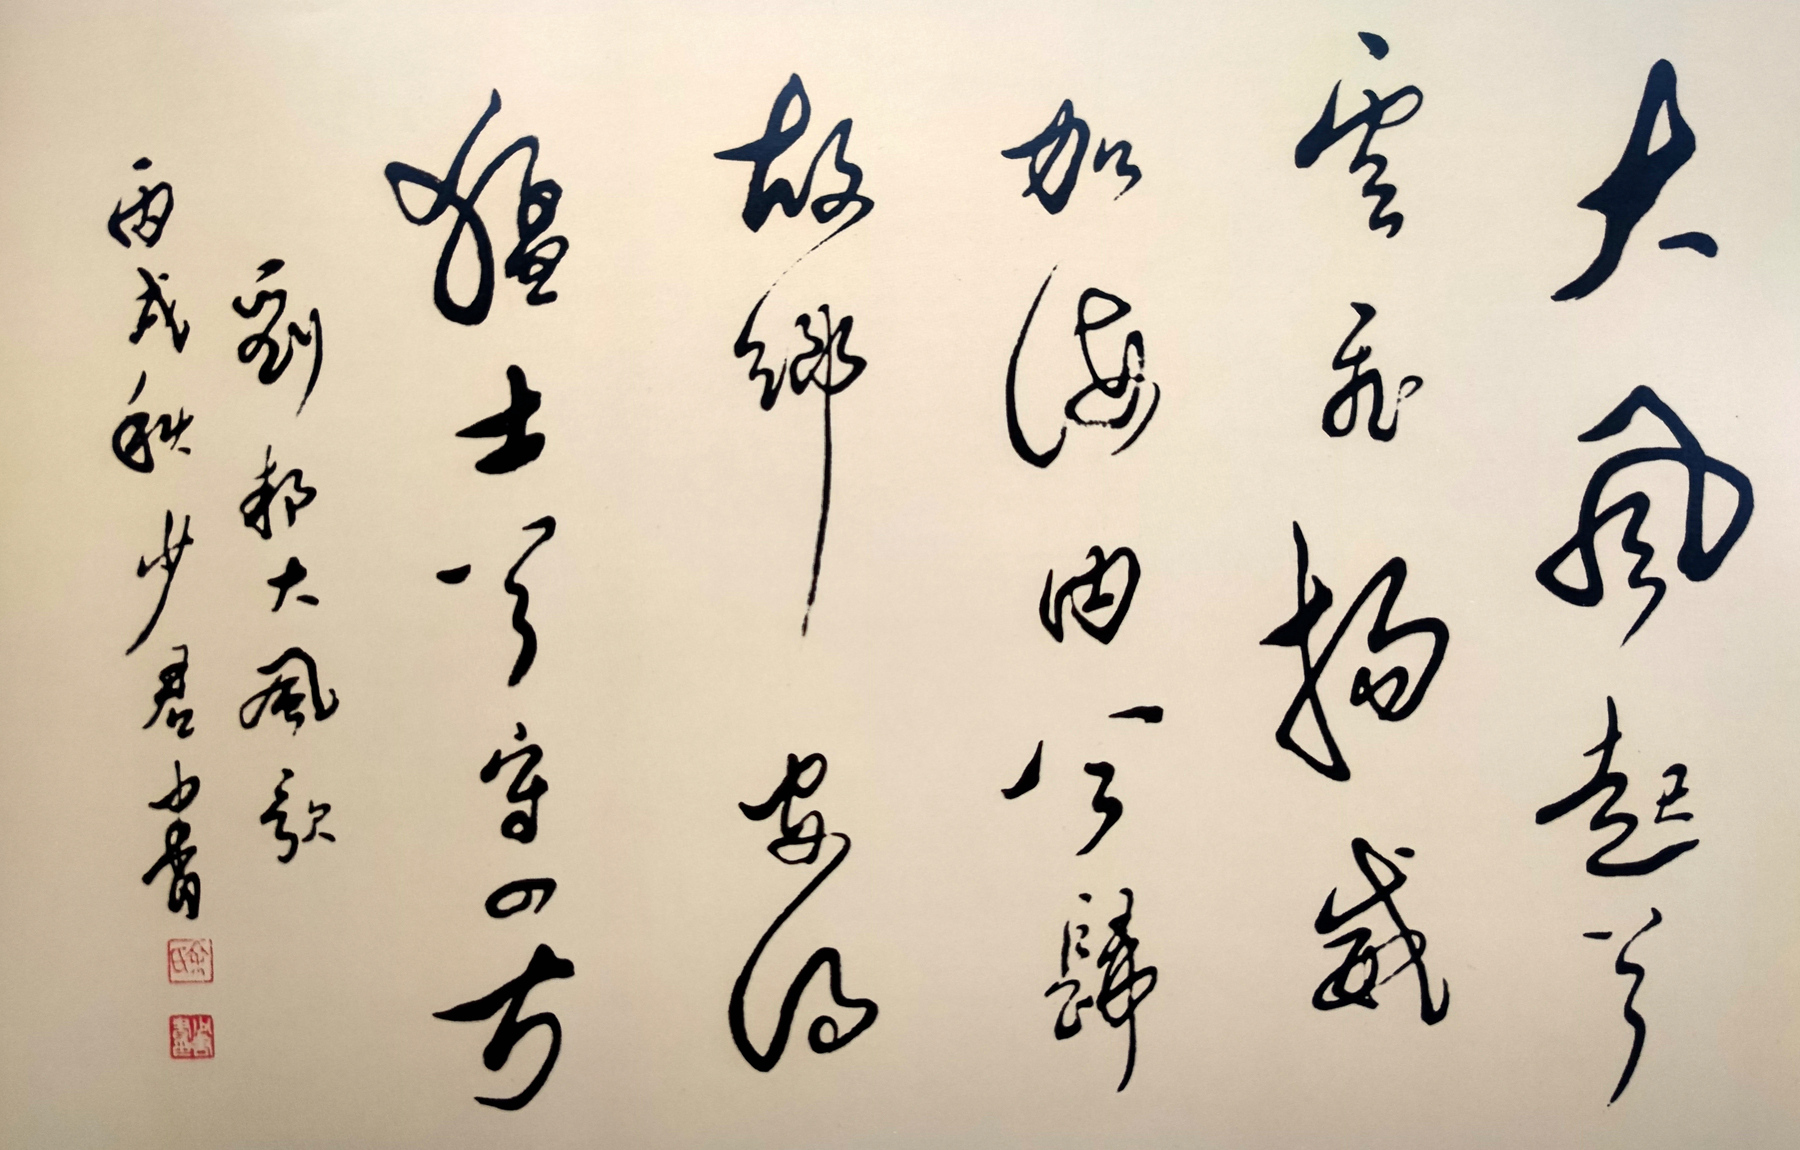 大風起兮
雲飛揚威
加海內兮歸
故鄉安得
猛士兮守四方
劉邦大風歌
丙戌秋少君書